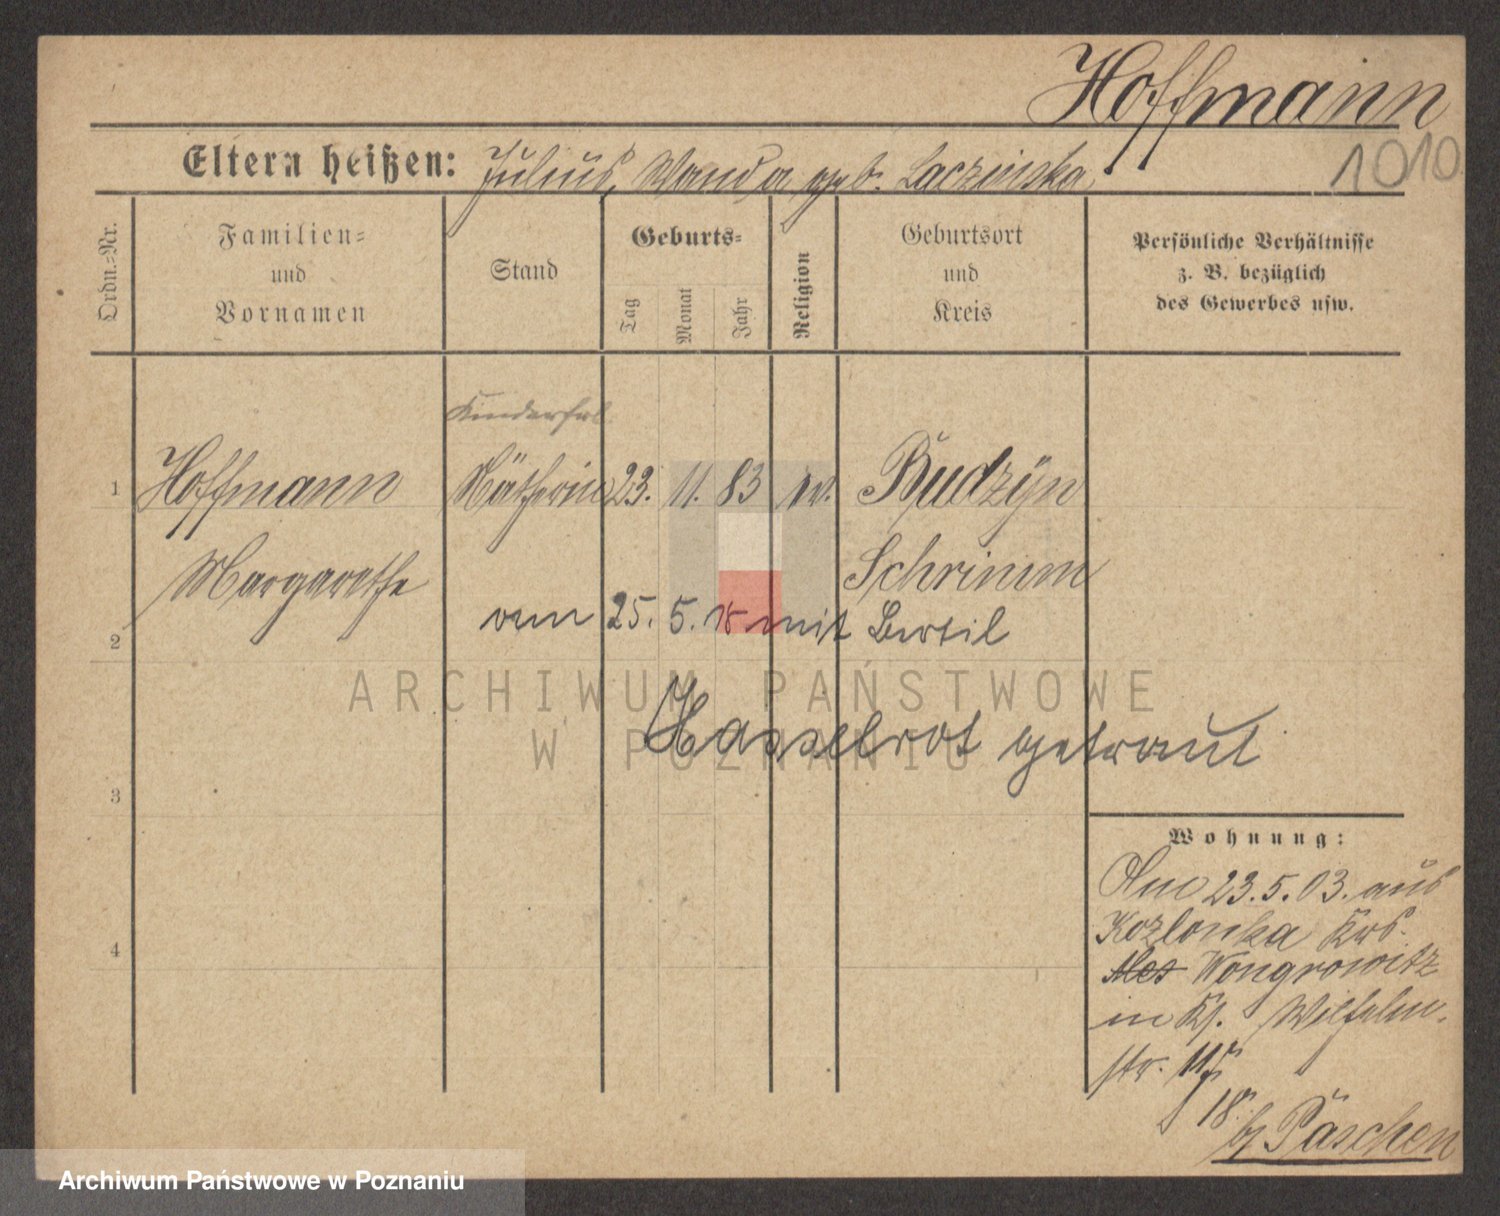 Hoffmann
1010
Eltern heißen: Julius, Wanda geb. Laczinska
Ordn.-Nr.
Familien-
und
Vornamen
Stand
Geburts-
Tag
Monat
Jahr
Religion
Geburtsort
und
Kreis
Persönliche Verhältnisse
z. B. bezüglich
des Gewerbes usw.
Kinderfrl.
1 Hoffmann Nätherin 23. 11. 83 ev. Budzyn
Margarethe Schrimm
2 vom 25. 5. mit Bertil
ARCHIWUM PAŃSTWOWE
W POZNANIU
Hasselrot getraut
3
Wohnung:
Am 23.5.03. aus
Kozlonka Krs.
Wongrowitz
in Wilhelm-
str. 11
4
18 Päschen
Archiwum Państwowe w Poznaniu